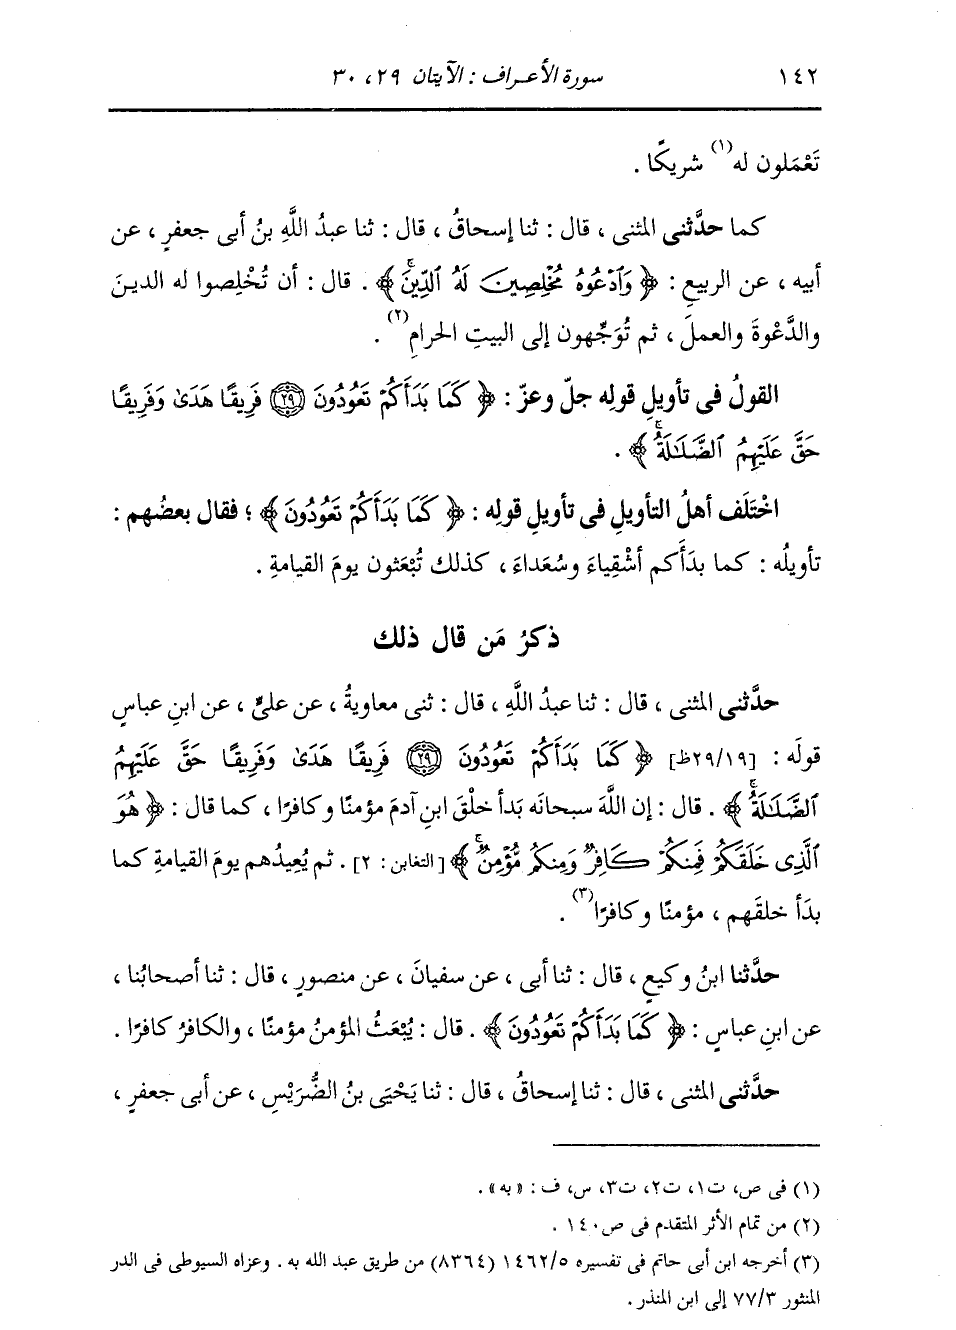 ١٤٢ سورة الأعراف : الآيتان ٢٩، ٣٠
تَعْمَلون له(١) شريكًا .
كما حدَّثنى المثنى ، قال : ثنا إسحاقُ ، قال : ثنا عبدُ اللَّهِ بنُ أبى جعفرٍ ، عن
أبيه ، عن الربيعِ : ﴿ وَٱدْعُوهُ مُخْلِصِينَ لَهُ ٱلدِّينَۚ ﴾ . قال : أن تُخْلِصوا له الدينَ
والدَّعْوةَ والعملَ ، ثم تُوَجِّهون إلى البيتِ الحرامِ(٢) .
القولُ فى تأويلِ قولِه جلّ وعزّ : ﴿ كَمَا بَدَأَكُمْ تَعُودُونَ ﴿٢٩﴾ فَرِيقًا هَدَىٰ وَفَرِيقًا
حَقَّ عَلَيْهِمُ ٱلضَّلَـٰلَةُۚ ﴾ .
اخْتَلَف أهلُ التأويلِ فى تأويلِ قولِه : ﴿ كَمَا بَدَأَكُمْ تَعُودُونَ ﴾ ؛ فقال بعضُهم :
تأويلُه : كما بدَأَكم أشْقِياءَ وسُعَداءَ ، كذلك تُبْعَثون يومَ القيامةِ .
ذكرُ مَن قال ذلك
حدَّثنى المثنى ، قال : ثنا عبدُ اللَّهِ ، قال : ثنى معاويةُ ، عن علىٍّ ، عن ابنِ عباسٍ
قولَه : [٢٩/١٩ظ] ﴿ كَمَا بَدَأَكُمْ تَعُودُونَ ﴿٢٩﴾ فَرِيقًا هَدَىٰ وَفَرِيقًا حَقَّ عَلَيْهِمُ
ٱلضَّلَـٰلَةُۚ ﴾ . قال : إن اللَّهَ سبحانَه بَدأ خلْقَ ابنِ آدمَ مؤمنًا وكافرًا ، كما قال : ﴿ هُوَ
ٱلَّذِى خَلَقَكُمْ فَمِنكُمْ كَافِرٌ وَمِنكُم مُّؤْمِنٌۚ ﴾ [التغابن : ٢] . ثم يُعِيدُهم يومَ القيامةِ كما
بدَأ خلقَهم ، مؤمنًا وكافرًا(٣) .
حدَّثنا ابنُ وكيعٍ ، قال : ثنا أبى ، عن سفيانَ ، عن منصورٍ ، قال : ثنا أصحابُنا ،
عن ابنِ عباسٍ : ﴿ كَمَا بَدَأَكُمْ تَعُودُونَ ﴾ . قال : يُبْعَثُ المؤمنُ مؤمنًا ، والكافرُ كافرًا .
حدَّثنى المثنى ، قال : ثنا إسحاقُ ، قال : ثنا يَحْيَى بنُ الضُّرَيْسِ ، عن أبى جعفرٍ ،
(١) فى ص، ت١، ت٢، ت٣، س، ف : «به» .
(٢) من تمام الأثر المتقدم فى ص١٤٠ .
(٣) أخرجه ابن أبى حاتم فى تفسيره ١٤٦٢/٥ (٨٣٦٤) من طريق عبد الله به . وعزاه السيوطى فى الدر
المنثور ٧٧/٣ إلى ابن المنذر .